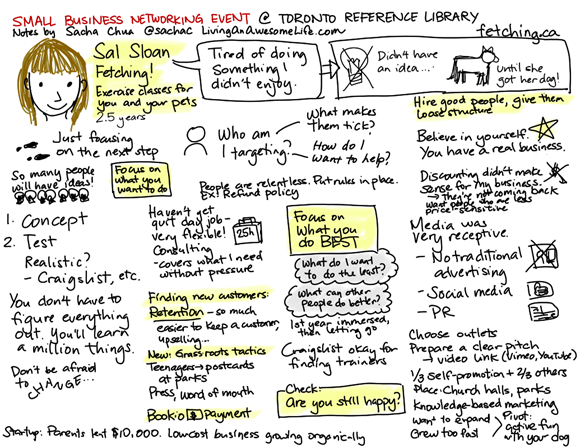 SMALL BUSINESS NETWORKING EVENT @ TORONTO REFERENCE LIBRARY
Notes by Sacha Chua @sachac LivingAnAwesomeLife.com
fetching.ca
Sal Sloan
Fetching!
Exercise classes for
you and your pets
2.5 years
Tired of doing
something I
didn't enjoy.
Didn't have
an idea...
Until she
got her dog!
Just focusing
on the next step
So many people
will have ideas!
Focus on
what you
want to do
1. Concept
2. Test
Realistic?
- Craigslist, etc.
You don't have to
figure everything
out. You'll learn
a million things.
Don't be afraid
to CHANGE...
Who am
I targeting?
What makes
them tick?
How do I
want to help?
People are relentless. Put rules in place.
Ex: Refund policy
Haven't yet
quit day job -
very flexible!
Consulting
- covers what I need
without pressure
25h
Finding new customers:
Retention - so much
easier to keep a customer,
upselling...
New: Grassroots tactics
Teenagers → postcards
at parks
Press, word of mouth
Book:io $ Payment
Focus on
what you
do BEST
What do I want
to do the least?
What can other
people do better?
1st year immersed,
then letting go
Craigslist okay for
finding trainers
Check:
Are you still happy?
Hire good people, give them
loose structure
Believe in yourself.
You have a real business.
Discounting didn't make
sense for my business.
→ They're not coming back
want people who are less
price-sensitive
Media was
very receptive.
- No traditional
advertising
- Social media
- PR
Choose outlets
Prepare a clear pitch
→ video link (Vimeo, YouTube)
1/3 self-promotion + 2/3 others
Place: Church halls, parks
Knowledge-based marketing
Want to expand
Grew too fast
Pivot:
active fun
with your dog
Startup: Parents lent $10,000. Low cost business growing organically